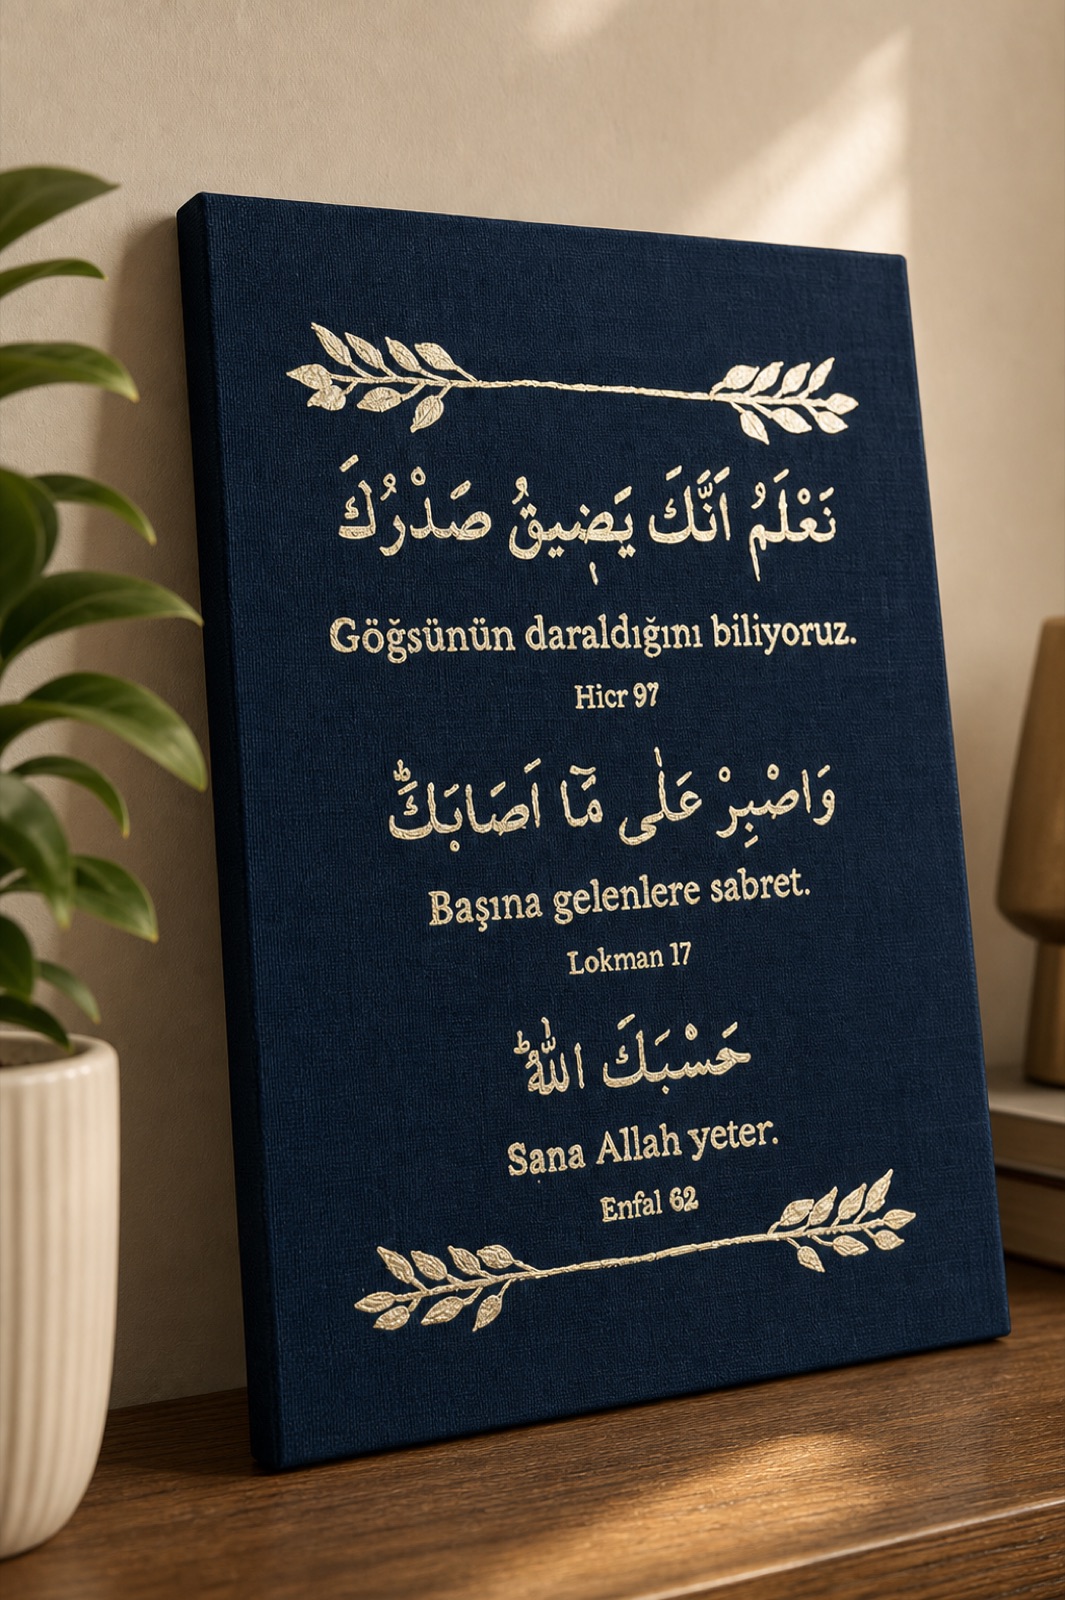 نَعْلَمُ اَنَّكَ يَض۪يقُ صَدْرُكَ
Göğsünün daraldığını biliyoruz.
Hicr 97
وَاصْبِرْ عَلٰى مَٓا اَصَابَكَۜ
Başına gelenlere sabret.
Lokman 17
حَسْبَكَ اللّٰهُۜ
Sana Allah yeter.
Enfal 62